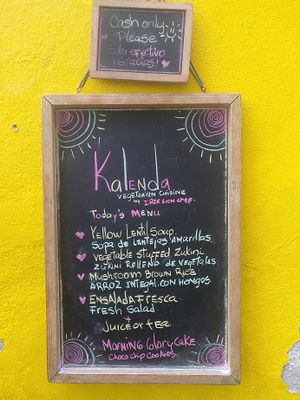 Cash only
Please
Solo efectivo
¡Gracias!
Kalenda
VEGETARIAN CUISINE
by IRIE LION CHEF.
Today's MENU
Yellow Lentil Soup
Sopa de lentejas Amarillas.
Vegetable Stuffed Zukini
Zukini Relleno de Vegetales
Mushroom Brown Rice
ARROZ INTEGRAL CON HONGOS.
ENSALADA FRESCA
FRESH SALAD
+
JUICE OR TEA.
MORNING GLORY CAKE
Choco Chip Cookies